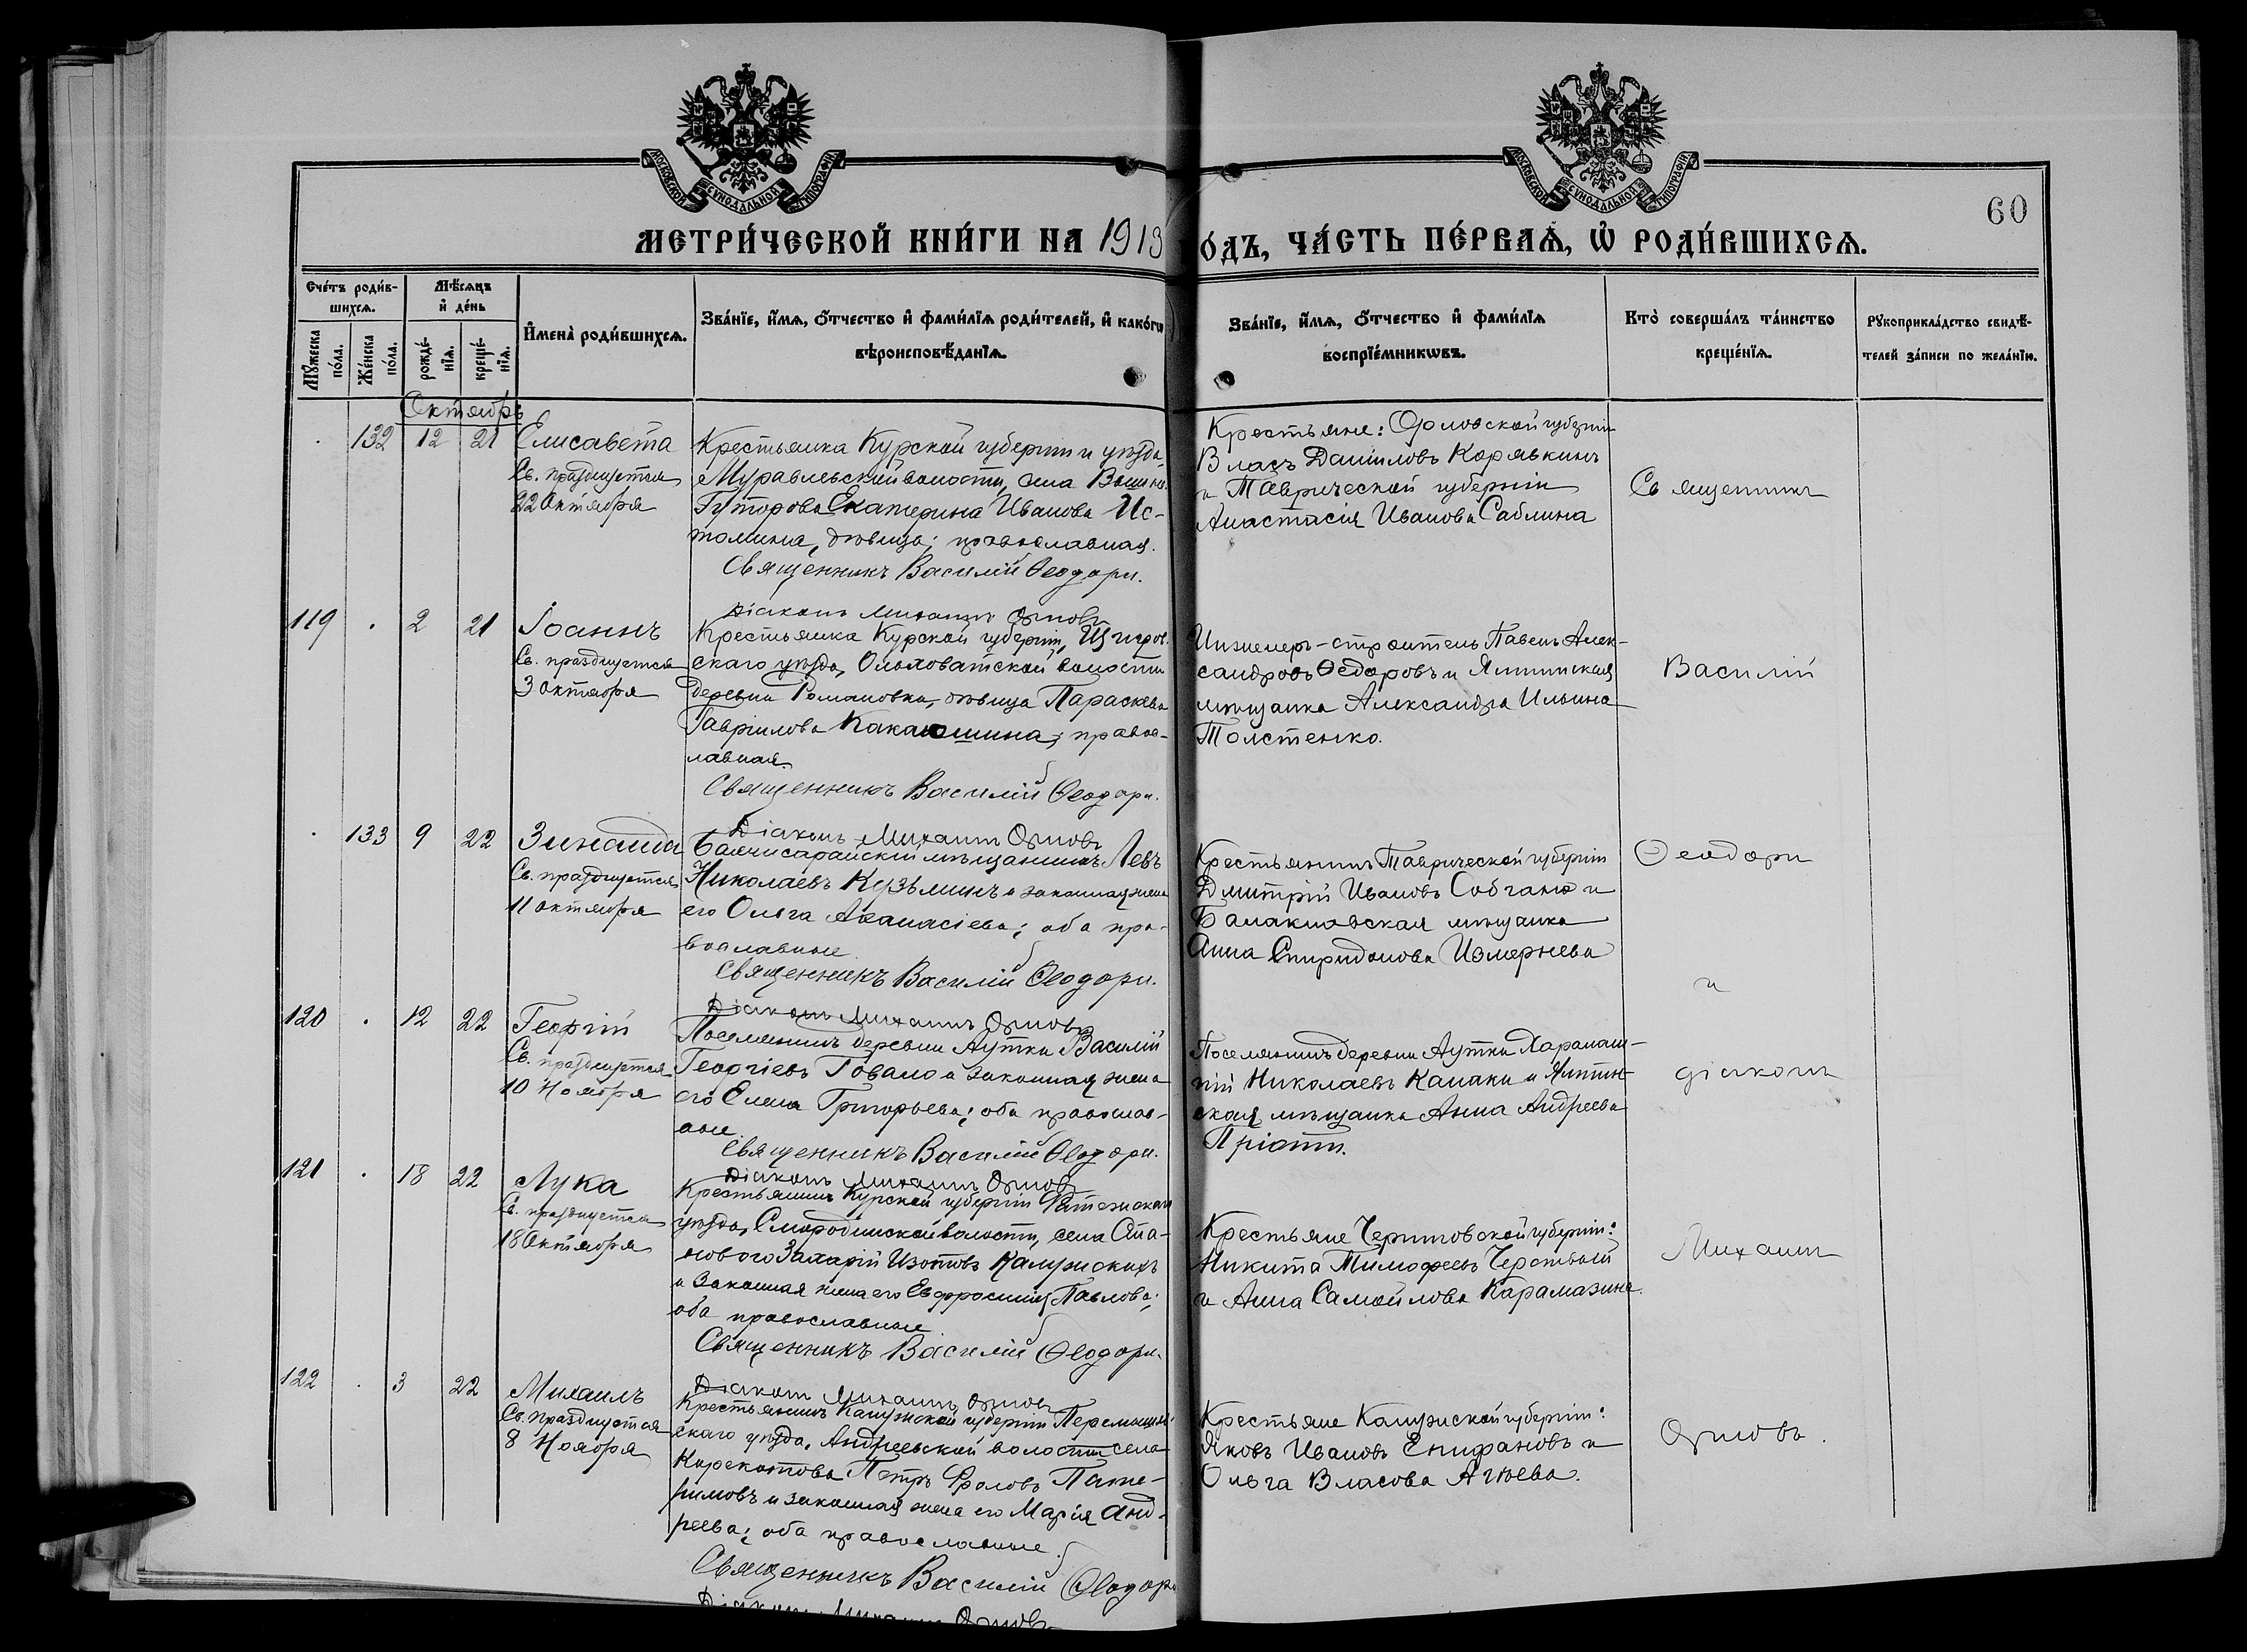 МОСКОВСКОЙ СѴНОДАЛЬНОЙ ТИПОГРАФІИ
МОСКОВСКОЙ СѴНОДАЛЬНОЙ ТИПОГРАФІИ
60
МЕТРИ́ЧЕСКОЙ КНИ́ГИ НА 1913
О́ДЪ, ЧА́СТЬ ПЕ́РВАѦ, Ѡ҆ РОДИ́ВШИХСѦ.
Сче́тъ роди́в-
шихсѧ.
Мꙋ́жеска по́ла.
Же́нска по́ла.
Мѣ́сѧцъ
и҆ де́нь
рожде́-нїѧ.
креще́-нїѧ.
И҆мена̀ роди́вшихсѧ.
Зва́нїе, и҆́мѧ, ѻ҆́тчество и҆ фами́лїѧ роди́телей, и҆ како́гѡ
вѣроисповѣ́данїѧ.
Зва́нїе, и҆́мѧ, ѻ҆́тчество и҆ фами́лїѧ
воспрїе́мникѡвъ.
Кто̀ соверша́лъ та́инство
креще́нїѧ.
Рꙋкоприкла́дство свидѣ́-
телей за́писи по жела́нїю.
Октябрь
132 12 21 Елисавета
Св. празднуется
22 Октября
Крестьянка Курской губерніи и уѣзда,
Муравлевской волости, села
Гуторова Екатерина Иванова Ис-
томина, дѣвица; православная.
Священникъ Василій Ѳеодори.
Діаконъ Михаилъ Орловъ
Крестьяне: Орловской губерніи
Власъ Даниловъ Корявкинъ
и Таврической губерніи
Анастасія Иванова Саблина
Священникъ
119 2 21 Іоаннъ
Св. празднуется
3 Октября
Крестьянка Курской губерніи, Щигров-
скаго уѣзда, Ольховатской волости
деревни Романовки, дѣвица Параскева
Гавріилова Какаюшина; правос-
лавная.
Священникъ Василій Ѳеодори.
Діаконъ Михаилъ Орловъ
Инженеръ-строитель Павелъ Алек-
сандровъ Ѳедоровъ и Ялтинская
мѣщанка Александра Ильина
Толстенко.
Василій
133 9 22 Зинаида
Св. празднуется
11 октября
Бахчисарайскій мѣщанинъ Левъ
Николаевъ Кузьминъ и законная жена
его Ольга Аѳанасіева; оба пра-
вославные.
Священникъ Василій Ѳеодори.
Діаконъ Михаилъ Орловъ
Крестьянинъ Таврической губерніи
Дмитрій Ивановъ и
Балаклавская мѣщанка
Анна Спиридонова
Ѳеодори
и
120 12 22 Георгій
Св. празднуется
10 Ноября
Поселянинъ деревни Аутки Василій
Георгіевъ Говало и законная жена
его Елена Григорьева; оба православ-
ные.
Священникъ Василій Ѳеодори.
Діаконъ Михаилъ Орловъ
Поселянинъ деревни Аутки Харалам-
пій Николаевъ Канаки и Ялтин-
ская мѣщанка Анна Андреева
Пріотти.
діаконъ
121 18 22 Лука
Св. празднуется
18 Октября
Крестьянинъ Курской губерніи Фатежскаго
уѣзда, Смородинской волости, села
Захарій Изотовъ Калужскихъ
и законная жена его Евфросинія Павлова;
оба православные.
Священникъ Василій Ѳеодори.
Діаконъ Михаилъ Орловъ
Крестьяне Черниговской губерніи:
Никита Тимоѳеевъ Черствый
и Анна Самойлова Карамазина.
Михаилъ
122 3 22 Михаилъ
Св. празднуется
8 Ноября
Крестьянинъ Калужской губерніи Перемышль-
скаго уѣзда, Андреевской волости села
Корекозова Петръ Фроловъ
и законная жена его Марія Анд-
реева; оба православные.
Священникъ Василій Ѳеодори
Діаконъ Михаилъ Орловъ
Крестьяне Калужской губерніи:
Яковъ Ивановъ Епифановъ и
Ольга Власова Агѣева.
Орловъ.